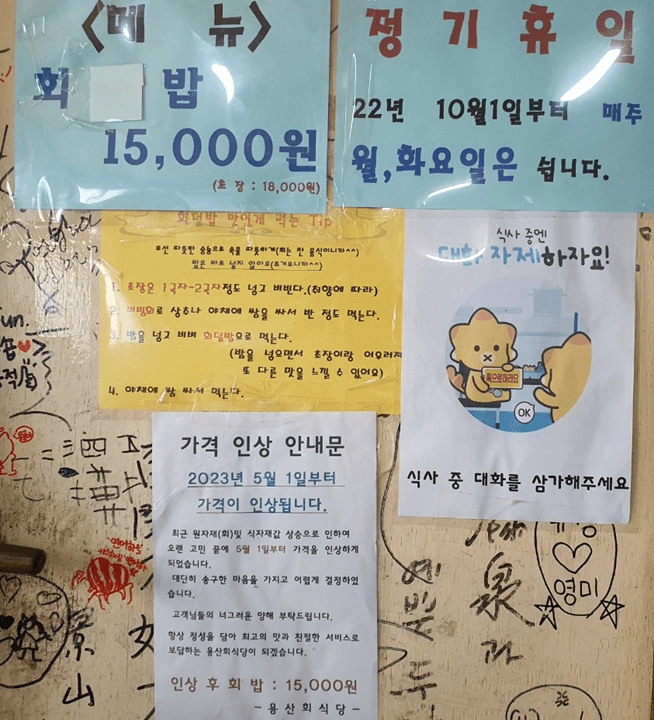 <메 뉴>
회 밥
15,000원
(초 장 : 18,000원)
정 기 휴 일
22년 10월1일부터 매주
월,화요일은 쉽니다.
회덮밥 맛있게 먹는 Tip
우선 따뜻한 숭늉으로 속을 따뜻하게(회는 찬 음식이니까^^)
밥은 따로 넣지 않아요(뜨거우니까^^)
1. 초장은 1국자-2국자정도 넣고 비빈다.(취향에 따라)
2. 비빔회로 상추나 야채에 쌈을 싸서 반 정도 먹는다.
3. 밥을 넣고 비벼 회덮밥으로 먹는다.
(밥을 넣으면서 초장이랑 어우러져
또 다른 맛을 느낄 수 있어요)
4. 야채에 쌈 싸서 먹는다.
식사 중엔
대화 자제하자요!
톡으로하려요
OK
식사 중 대화를 삼가해주세요
가격 인상 안내문
2023년 5월 1일부터
가격이 인상됩니다.
최근 원자재(회)및 식자재값 상승으로 인하여
오랜 고민 끝에 5월 1일부터 가격을 인상하게
되었습니다.
대단히 송구한 마음을 가지고 어렵게 결정하였
습니다.
고객님들의 너그러운 양해 부탁드립니다.
항상 정성을 담아 최고의 맛과 친절한 서비스로
보답하는 용산회식당이 되겠습니다.
인상 후 회 밥 : 15,000원
- 용산회식당 -
예빈두
泉
과
영미
景
山
女